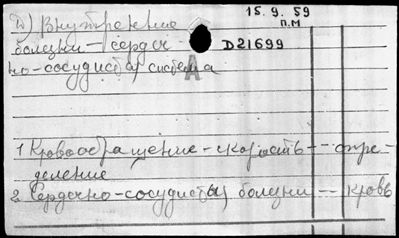 15. 9. 59
П.М
D) Внутренние
болезни - сердеч
D21699
но-сосудистая система
A
1 Кровообращение - скорость -- опре-
деление
2 Сердечно-сосудистые болезни -- кровь